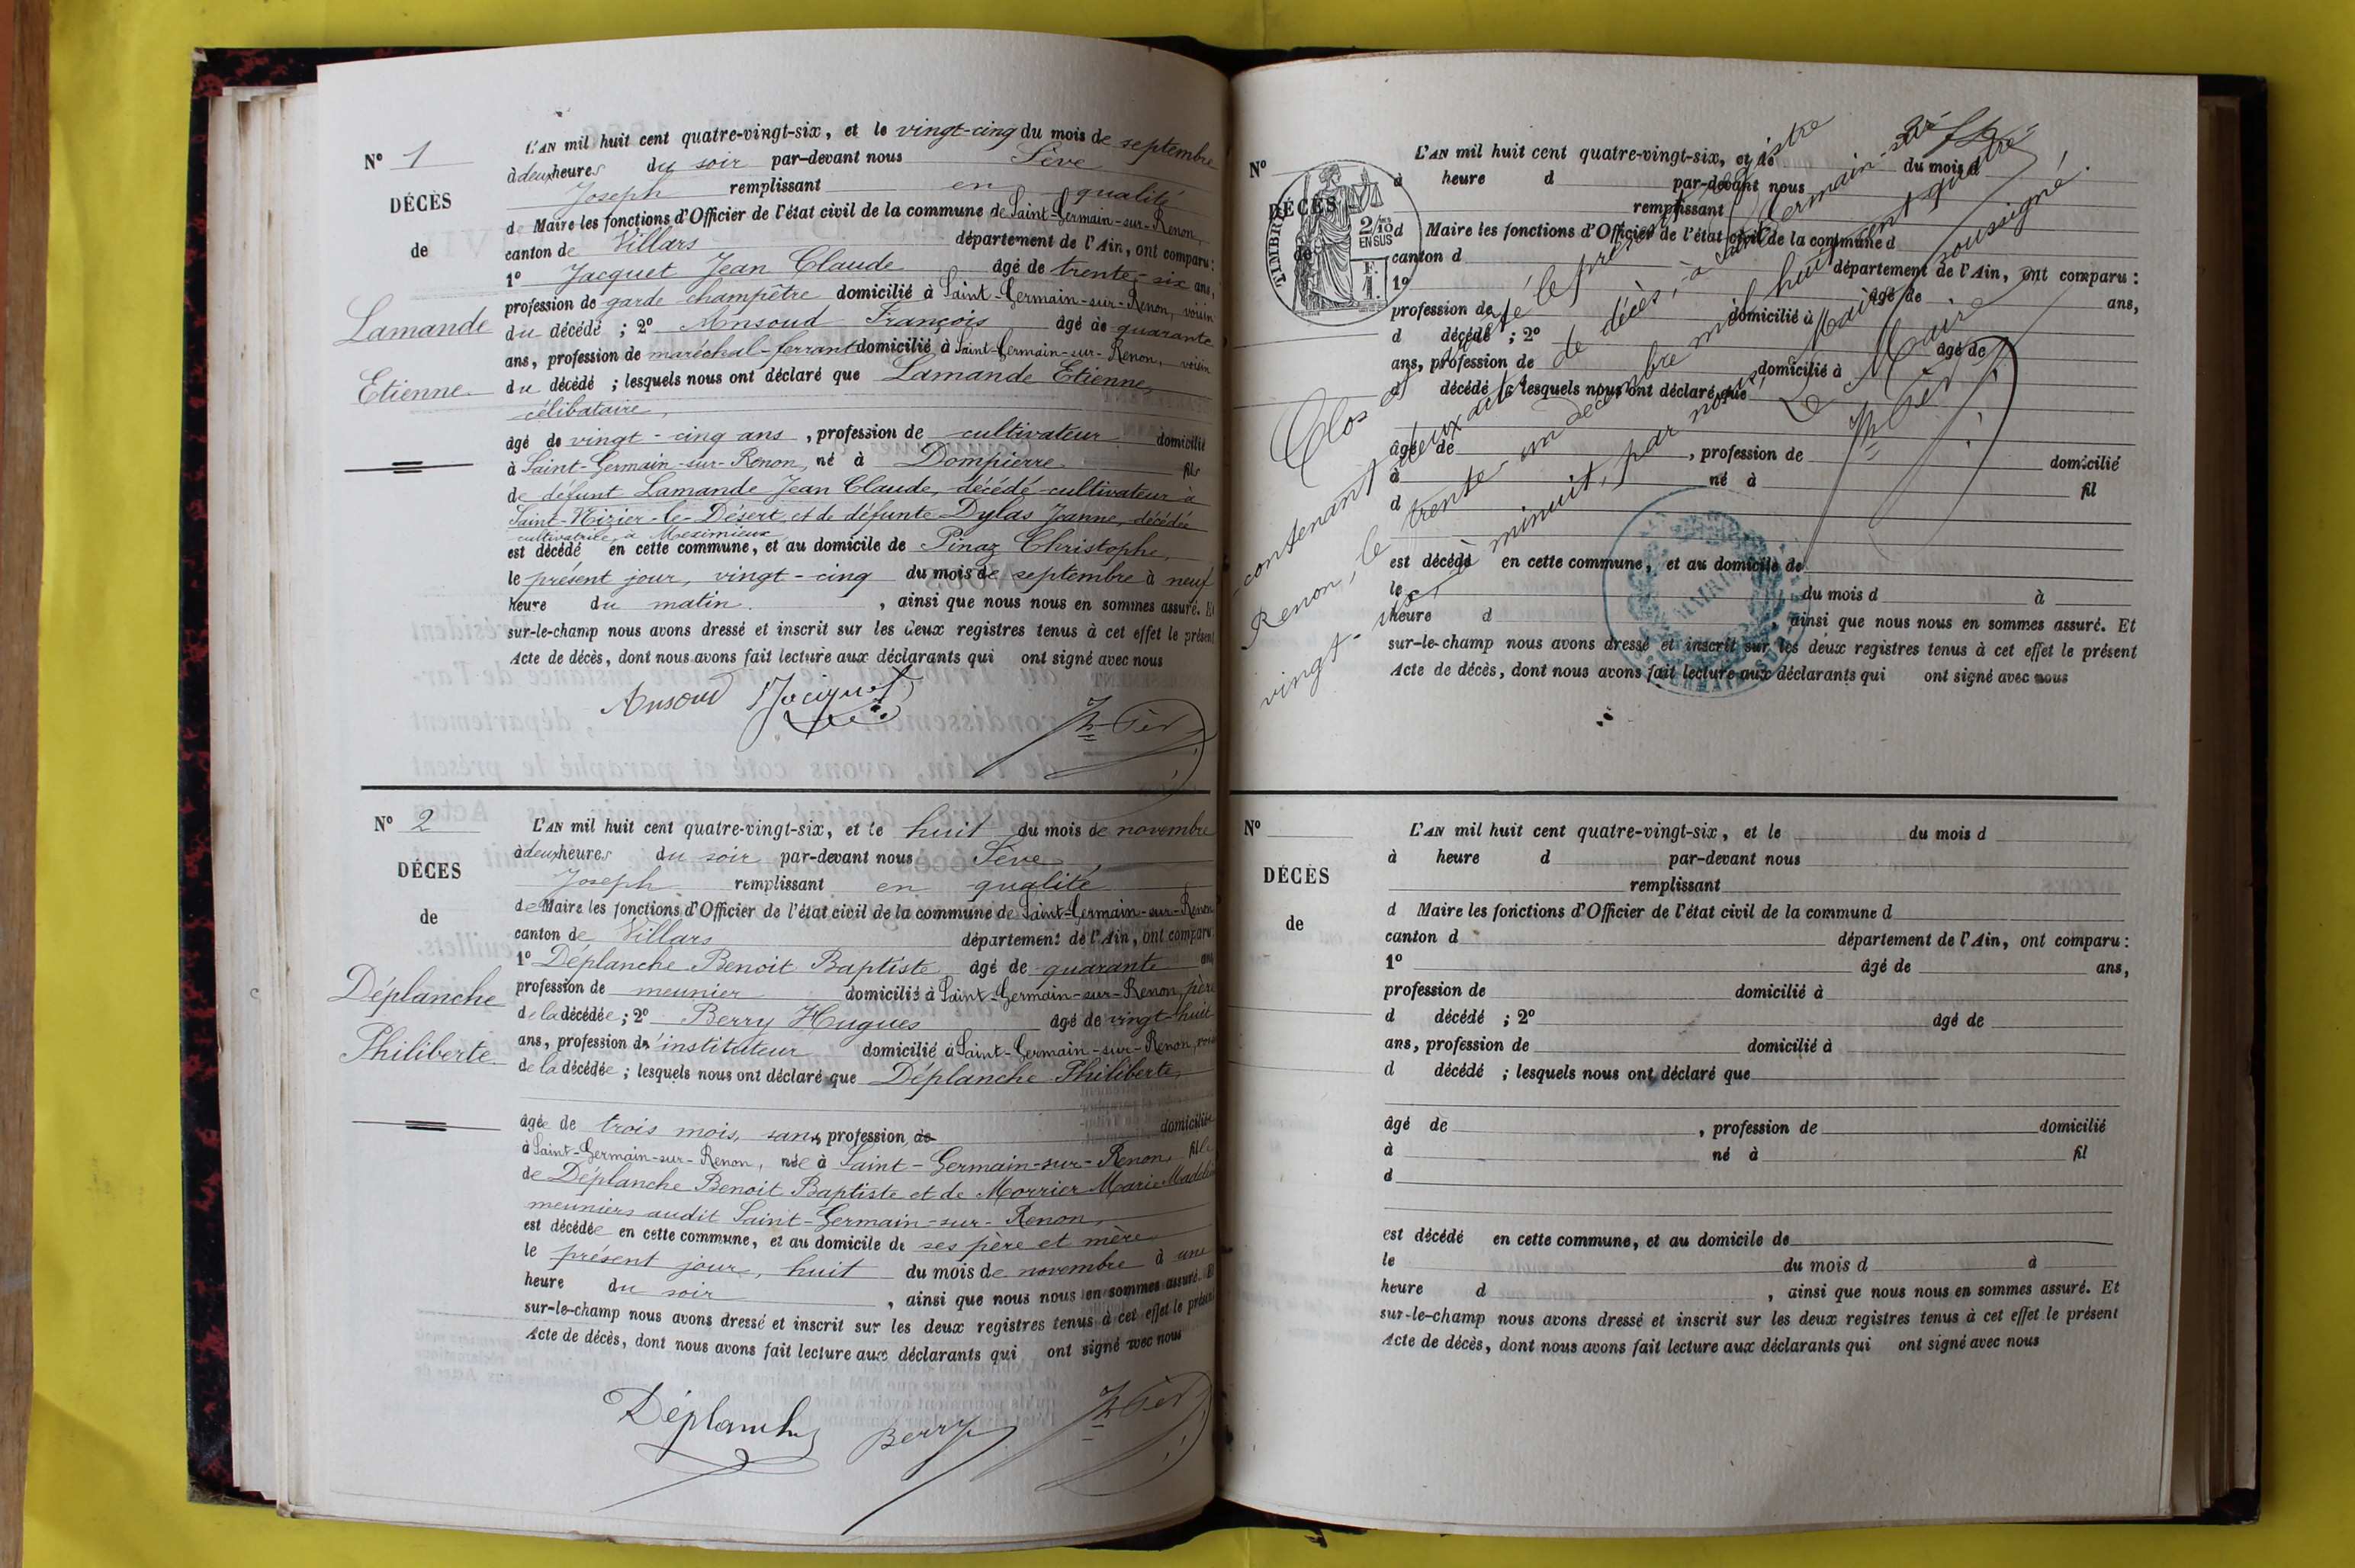 N° 1
DÉCÈS
de
Lamande
Etienne
L'AN mil huit cent quatre-vingt-six, et le vingt-cinq du mois de septembre
à deux heures du soir par-devant nous Sève
Joseph remplissant en qualité
de Maire les fonctions d'Officier de l'état civil de la commune de Saint-Germain-sur-Renon,
canton de Villars département de l'Ain, ont comparu :
1° Jacquet Jean Claude âgé de trente-six ans,
profession de garde champêtre domicilié à Saint-Germain-sur-Renon, voisin
du décédé ; 2° Ansoud François âgé de quarante
ans, profession de maréchal-ferrant domicilié à Saint-Germain-sur-Renon, voisin
du décédé ; lesquels nous ont déclaré que Lamande Etienne,
célibataire,
âgé de vingt-cinq ans, profession de cultivateur domicilié
à Saint-Germain-sur-Renon, né à Dompierre fils
de défunt Lamande Jean Claude, décédé cultivateur à
Saint-Nizier-le-Désert, et de défunte Dylas Jeanne, décédée
cultivatrice à Meximieux
est décédé en cette commune, et au domicile de Pinaz Christophe,
le présent jour, vingt-cinq du mois de septembre à neuf
heure du matin, ainsi que nous nous en sommes assuré. Et
sur-le-champ nous avons dressé et inscrit sur les deux registres tenus à cet effet le présent
Acte de décès, dont nous avons fait lecture aux déclarants qui ont signé avec nous
Ansoud Jacquet
Jh Sève
N° 2
DÉCÈS
de
Déplanche
Philiberte
L'AN mil huit cent quatre-vingt-six, et le huit du mois de novembre
à deux heures du soir par-devant nous Sève
Joseph remplissant en qualité
de Maire les fonctions d'Officier de l'état civil de la commune de Saint-Germain-sur-Renon
canton de Villars département de l'Ain, ont comparu
1° Déplanche Benoit Baptiste âgé de quarante ans
profession de meunier domicilié à Saint-Germain-sur-Renon, père
de la décédée ; 2° Berry Hugues âgé de vingt-huit
ans, profession d'instituteur domicilié à Saint-Germain-sur-Renon, voisin
de la décédée ; lesquels nous ont déclaré que Déplanche Philiberte,
âgée de trois mois, sans profession de domiciliée
à Saint-Germain-sur-Renon, née à Saint-Germain-sur-Renon, fille
de Déplanche Benoit Baptiste et de Morrier Marie
meuniers audit Saint-Germain-sur-Renon,
est décédée en cette commune, et au domicile de ses père et mère
le présent jour, huit du mois de novembre à une
heure du soir, ainsi que nous nous en sommes assuré. Et
sur-le-champ nous avons dressé et inscrit sur les deux registres tenus à cet effet le présent
Acte de décès, dont nous avons fait lecture aux déclarants qui ont signé avec nous
Déplanche Berry Jh Sève
N°
DÉCÈS
de
TIMBRE
2/10
EN SUS
F.
1
L'AN mil huit cent quatre-vingt-six, et le du mois d
à heure d par-devant nous
remplissant
d Maire les fonctions d'Officier de l'état civil de la commune d
canton d département de l'Ain, ont comparu :
1° âgé de ans,
profession de domicilié à
d décédé ; 2° âgé de
ans, profession de domicilié à
d décédé ; lesquels nous ont déclaré que
âgé de , profession de domicilié
à né à fil
d
est décédé en cette commune, et au domicile de
le du mois d à
heure d , ainsi que nous nous en sommes assuré. Et
sur-le-champ nous avons dressé et inscrit sur les deux registres tenus à cet effet le présent
Acte de décès, dont nous avons fait lecture aux déclarants qui ont signé avec nous
Clos et arrêté le présent registre
contenant deux actes de décès, à Saint-Germain-sur-
Renon, le trente-un décembre mil huit cent quatre-
vingt-six à minuit, par nous, Maire soussigné.
Le Maire
Jh Sève
MAIRIE
N°
DÉCÈS
de
L'AN mil huit cent quatre-vingt-six, et le du mois d
à heure d par-devant nous
remplissant
d Maire les fonctions d'Officier de l'état civil de la commune d
canton d département de l'Ain, ont comparu :
1° âgé de ans,
profession de domicilié à
d décédé ; 2° âgé de
ans, profession de domicilié à
d décédé ; lesquels nous ont déclaré que
âgé de , profession de domicilié
à né à fil
d
est décédé en cette commune, et au domicile de
le du mois d à
heure d , ainsi que nous nous en sommes assuré. Et
sur-le-champ nous avons dressé et inscrit sur les deux registres tenus à cet effet le présent
Acte de décès, dont nous avons fait lecture aux déclarants qui ont signé avec nous